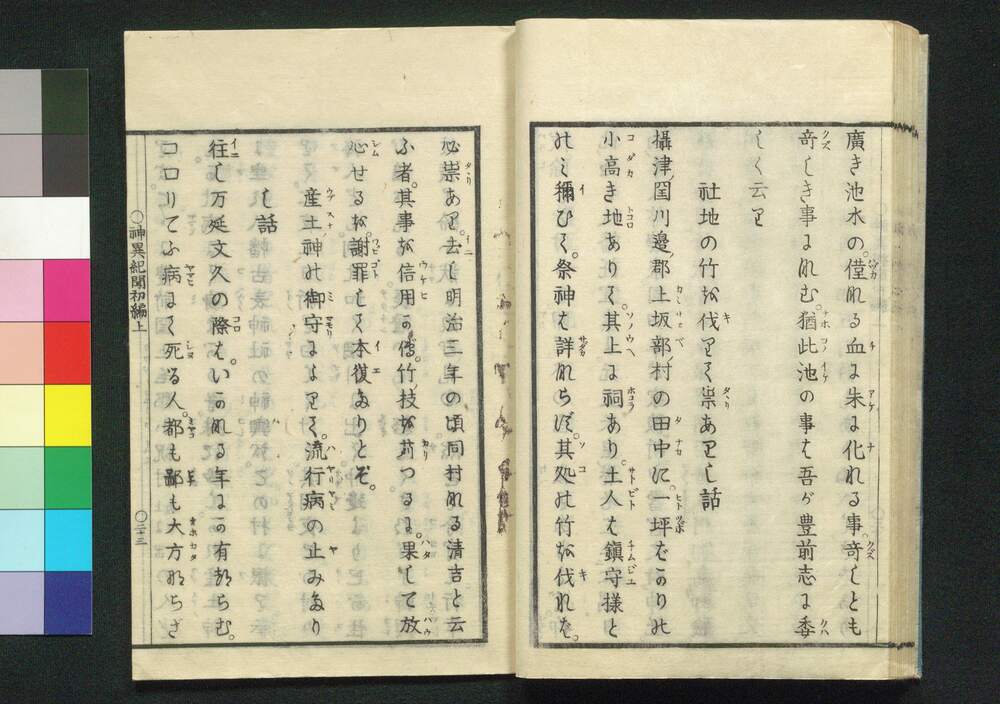 廣き池水の。僅なる血に朱に化れる事。奇しとも
奇しき事になむ。猶此池の事も吾が豊前志に委
しく云り
社地の竹を伐りて祟ありし話
攝津ノ国川邊ノ郡上坂部ノ村の田中に。一坪ばかりの
小高き地ありて。其上に祠あり。土人も鎮守様と
のミ稱ひて。祭神も詳ならず。其処の竹を伐れば。
必祟あり。去し明治三年の頃同村なる清吉と云
ふ者。其事を信用ハず。竹ノ枝を苅つるに。果して放
心せるを。謝罪して本復なりとぞ。
産土神の御守によりて。流行病の止みたり
し話
往し万延文久の際は。いかなる年にか有けむ。
コロリてふ病にて死ぬる人。都も鄙も大方ならざ
〇神異紀聞初編上
〇二十三